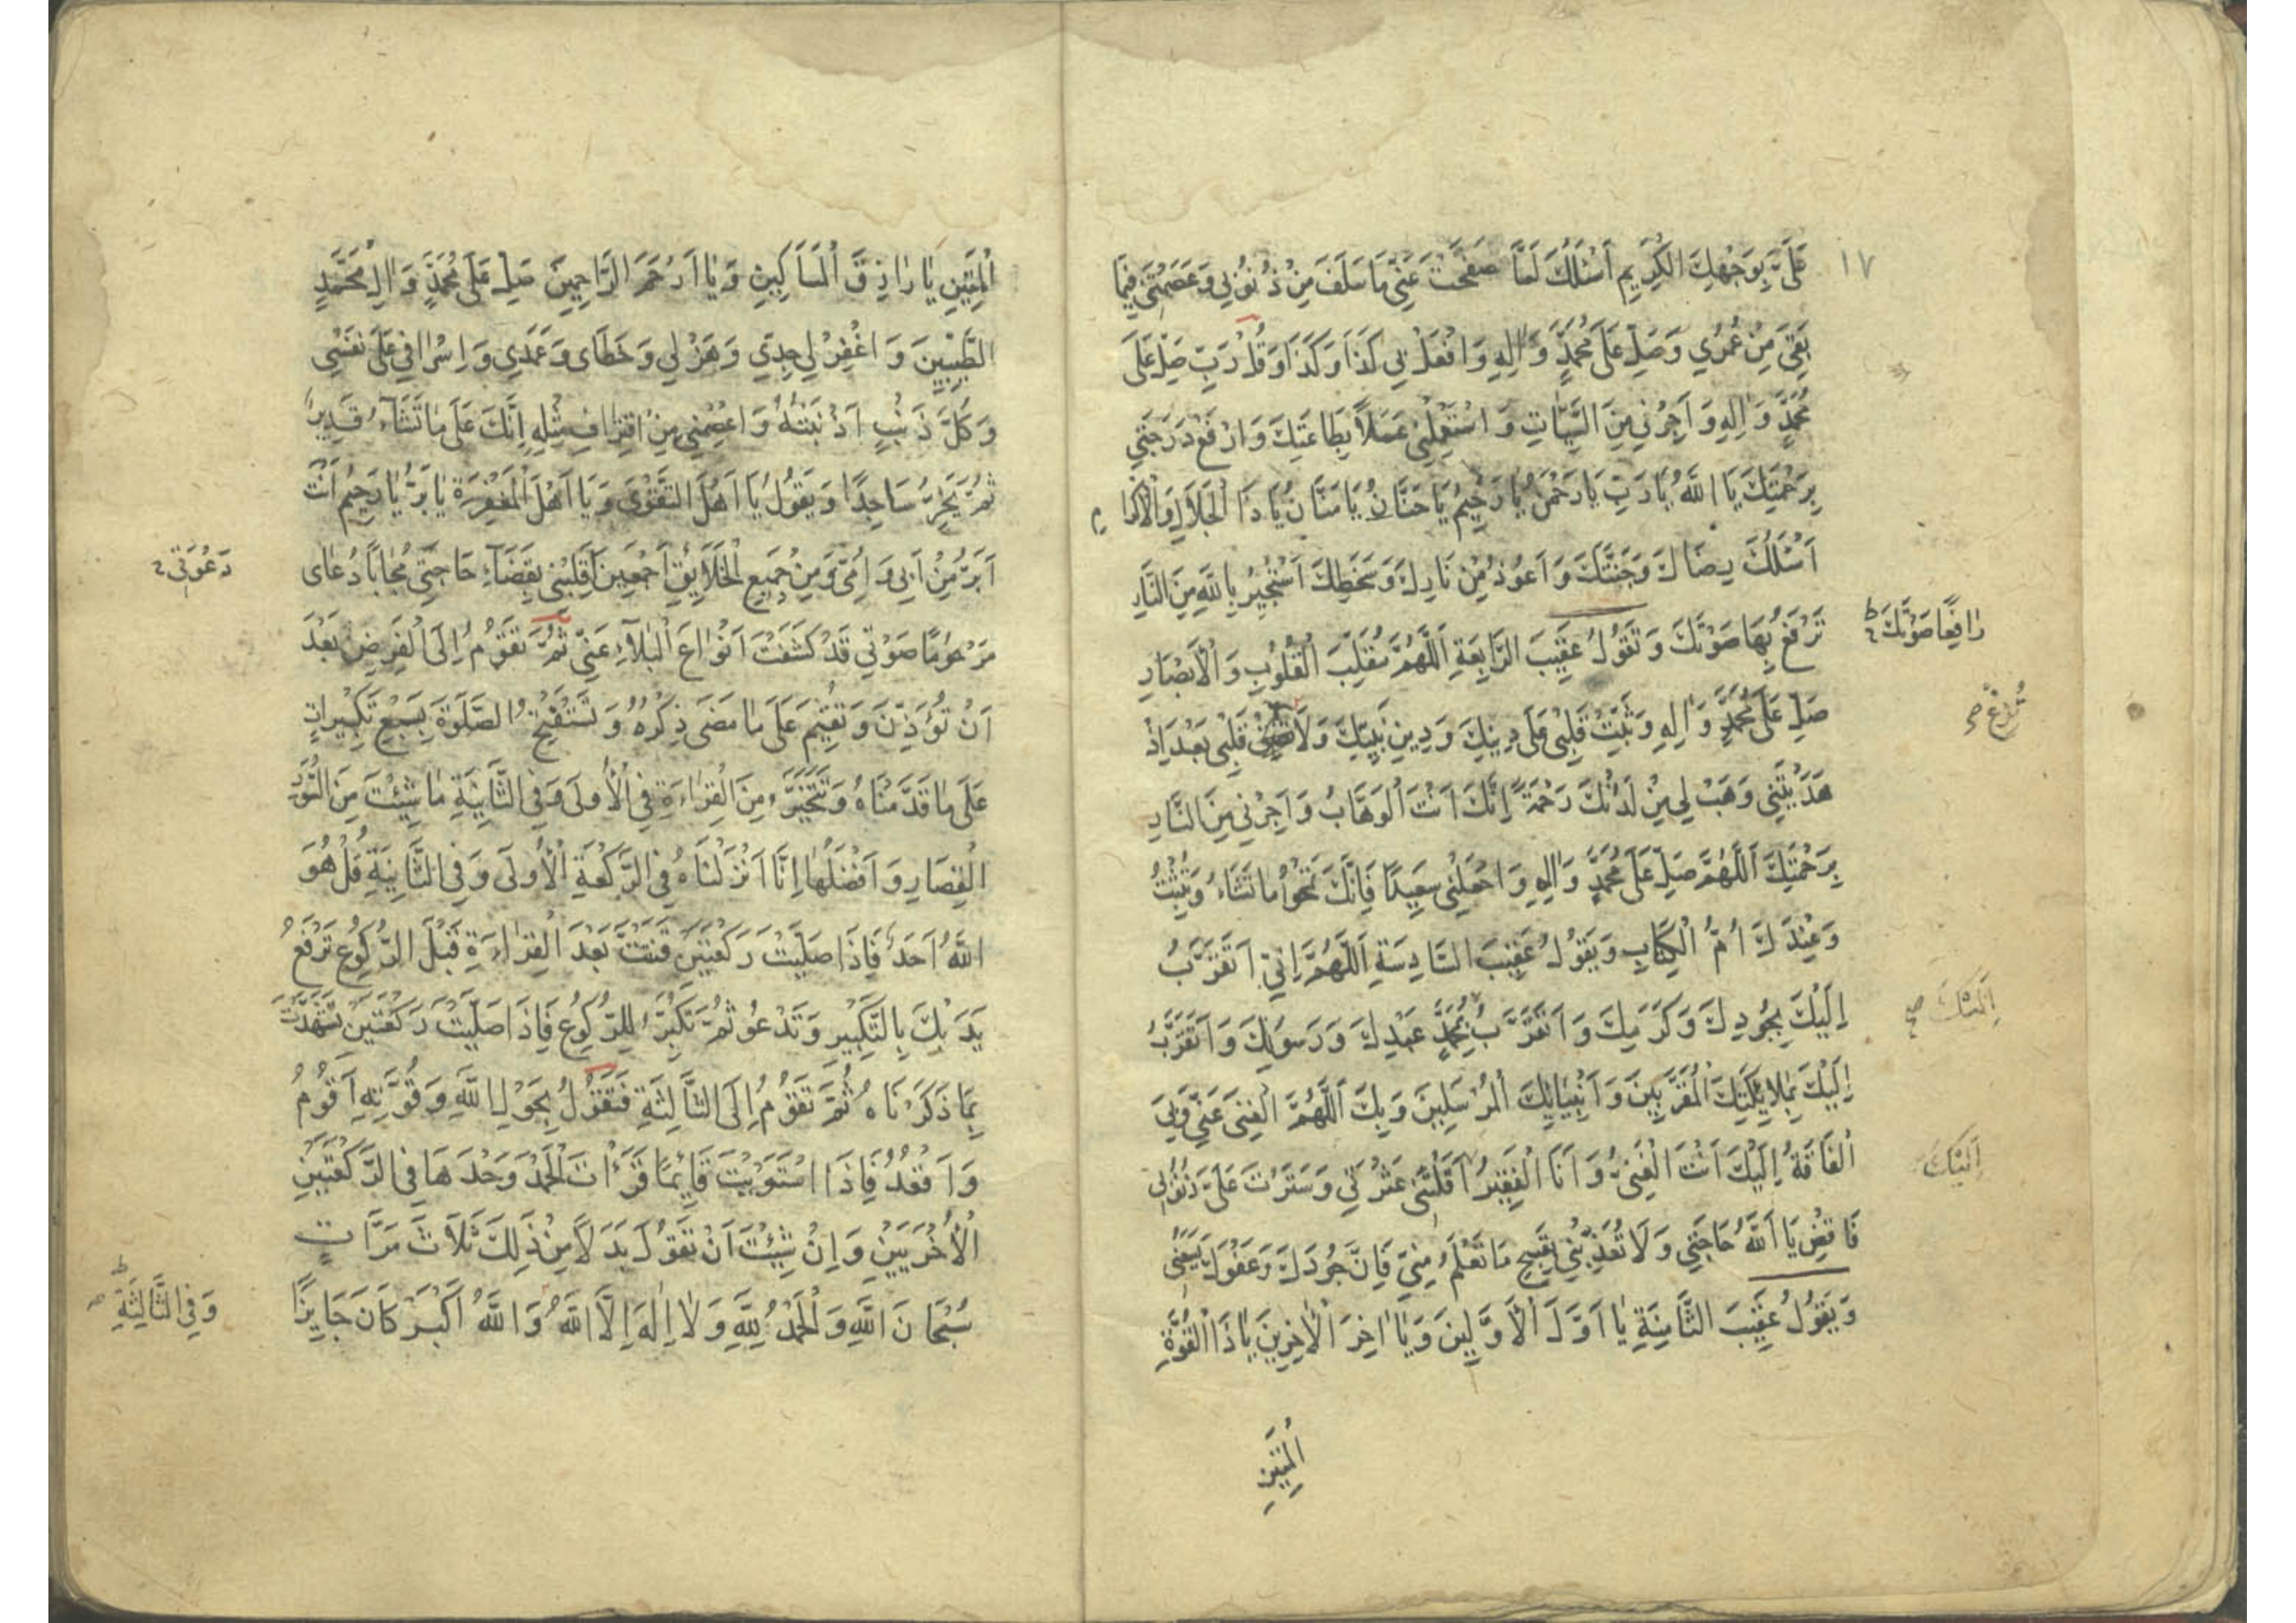 ١٧
عَلَيَّ بِوَجْهِكَ الْكَرِيمِ أَسْئَلُكَ لَمَّا صَفَحْتَ عَنّي مَا سَلَفَ مِنْ ذُنُوبي وَعَصَمْتَني فِيمَا
بَقِيَ مِنْ عُمُري وَصَلِّ عَلَى مُحَمَّدٍ وَالِهِ وَافْعَلْ بي كَذَا وَكَذَا وَقُلْ رَبِّ صَلِّ عَلَى
مُحَمَّدٍ وَالِهِ وَاَجِرْني مِنَ السَّيِّئَاتِ وَاسْتَعْمِلْني عَمَلاً بِطَاعَتِكَ وَارْفَعْ دَرَجَتي
بِرَحْمَتِكَ يَا اللَّهُ يَا رَبِّ يَا رَحْمٰنُ يَا رَحِيمُ يَا حَنَّانُ يَا مَنَّانُ يَا ذَا الْجَلَالِ وَالْاِكْرَامِ
اَسْئَلُكَ رِضَاكَ وَجَنَّتَكَ وَاَعُوذُ مِنْ نَارِكَ وَسَخَطِكَ اَسْتَجِيرُ بِاللَّهِ مِنَ النَّارِ
تَرْفَعُ بِهَا صَوْتَكَ وَتَقُولُ عَقِيبَ الرَّابِعَةِ اَللَّهُمَّ مُقَلِّبَ الْقُلُوبِ وَالْاَبْصَارِ
رَافِعًا صَوْتَكَ
صَلِّ عَلَى مُحَمَّدٍ وَالِهِ وَثَبِّتْ قَلْبي عَلَى دِينِكَ وَدِينِ نَبِيِّكَ وَلَا قَلْبي بَعْدَ اِذْ
تُزِغْ
هَدَيْتَني وَهَبْ لي مِنْ لَدُنْكَ رَحْمَةً اِنَّكَ اَنْتَ الْوَهَّابُ وَاَجِرْني مِنَ النَّارِ
بِرَحْمَتِكَ اَللَّهُمَّ صَلِّ عَلَى مُحَمَّدٍ وَالِهِ وَاجْعَلْني سَعِيدًا فَاِنَّكَ تَمْحُوا مَا تَشَاءُ وَتُثْبِتُ
وَعِنْدَكَ اُمُّ الْكِتَابِ وَيَقُولُ عَقِيبَ السَّادِسَةِ اَللَّهُمَّ اِنّي اَتَقَرَّبُ
اِلَيْكَ بِجُودِكَ وَكَرَمِكَ وَاَتَقَرَّبُ بِمُحَمَّدٍ عَبْدِكَ وَرَسُولِكَ وَاَتَقَرَّبُ
اِلَيْكَ
اِلَيْكَ بِمَلَائِكَتِكَ الْمُقَرَّبِينَ وَاَنْبِيَائِكَ الْمُرْسَلِينَ وَبِكَ اَللَّهُمَّ الْغِنَى عَنّي وَبِيَ
الْفَاقَةُ اِلَيْكَ اَنْتَ الْغَنِيُّ وَاَنَا الْفَقِيرُ اَقَلْتَني عَثْرَتي وَسَتَرْتَ عَلَيَّ ذُنُوبي
اِلَيْكَ
فَاقْضِ يَا اَللَّهُ حَاجَتي وَلَا تُعَذِّبْني بِقَبِيحِ مَا تَعْلَمُ مِنّي فَاِنَّ جُودَكَ وَعَفْوَكَ يَسَعُني
وَيَقُولُ عَقِيبَ الثَّامِنَةِ يَا اَوَّلَ الْاَوَّلِينَ وَيَا اٰخِرَ الْاٰخِرِينَ يَا ذَا الْقُوَّةِ
الْمَتِينِ
الْمَتِينِ يَا رَازِقَ الْمَسَاكِينِ وَيَا اَرْحَمَ الرَّاحِمِينَ صَلِّ عَلَى مُحَمَّدٍ وَالِ مُحَمَّدٍ
الطَّيِّبِينَ وَاغْفِرْ لي جِدّي وَهَزْلي وَخَطَاى وَعَمْدي وَاِسْرَافي عَلَى نَفْسي
وَكُلَّ ذَنْبٍ اَذْنَبْتُهُ وَاعْصِمْني مِنْ اقْتِرَافِ مِثْلِهِ اِنَّكَ عَلَى مَا تَشَاءُ قَدِيرٌ
ثُمَّ يَخِرُّ سَاجِدًا وَيَقُولُ يَا اَهْلَ التَّقْوَى وَيَا اَهْلَ الْمَغْفِرَةِ يَا بَرُّ يَا رَحِيمُ اَنْتَ
اَبَرُّ مِنْ اَبي وَاُمّي وَمِنْ جَمِيعِ الْخَلَائِقِ اَجْمَعِينَ اَقْلِبْني بِقَضَاءِ حَاجَتي مُجَابًا دُعَاى
دَعْوَتي
مَرْحُومًا صَوْتي قَدْ كَشَفْتَ اَنْوَاعَ الْبَلَاءِ عَنّي ثُمَّ تَقُومُ اِلَى الْفَرْضِ بَعْدَ
اَنْ تُؤَذِّنَ وَتُقِيمَ عَلَى مَا مَضَى ذِكْرُهُ وَتَسْتَفْتِحُ الصَّلٰوةَ بِسَبْعِ تَكْبِيرَاتٍ
عَلَى مَا قَدَّمْنَاهُ وَتَتَخَيَّرُ مِنَ الْقِرَاءَةِ فِي الْاُولَى وَفِي الثَّانِيَةِ مَا شِئْتَ مِنَ السُّوَرِ
الْقِصَارِ وَاَفْضَلُهَا اِنَّا اَنْزَلْنَاهُ فِي الرَّكْعَةِ الْاُولَى وَفِي الثَّانِيَةِ قُلْ هُوَ
اللَّهُ اَحَدٌ فَاِذَا صَلَّيْتَ رَكْعَتَيْنِ قَنَتَّ بَعْدَ الْقِرَاءَةِ قَبْلَ الرُّكُوعِ تَرْفَعُ
يَدَيْكَ بِالتَّكْبِيرِ وَتَدْعُو ثُمَّ تُكَبِّرُ لِلرُّكُوعِ فَاِذَا صَلَّيْتَ رَكْعَتَيْنِ تَشَهَّدْتَ
بِمَا ذَكَرْنَاهُ ثُمَّ تَقُومُ اِلَى الثَّالِثَةِ فَتَقُولُ بِحَوْلِ اللَّهِ وَقُوَّتِهِ اَقُومُ
وَاَقْعُدُ فَاِذَا اسْتَوَيْتَ قَائِمًا قَرَأْتَ الْحَمْدَ وَحْدَهَا فِي الرَّكْعَتَيْنِ
الْاُخْرَيَيْنِ وَاِنْ شِئْتَ اَنْ تَقُولَ بَدَلاً مِنْ ذَلِكَ ثَلَاثَ مَرَّاتٍ
سُبْحَانَ اللَّهِ وَالْحَمْدُ لِلَّهِ وَلَا اِلٰهَ اِلَّا اللَّهُ وَاللَّهُ اَكْبَرُ كَانَ جَايِزًا
وَفِي الثَّالِثَةِ